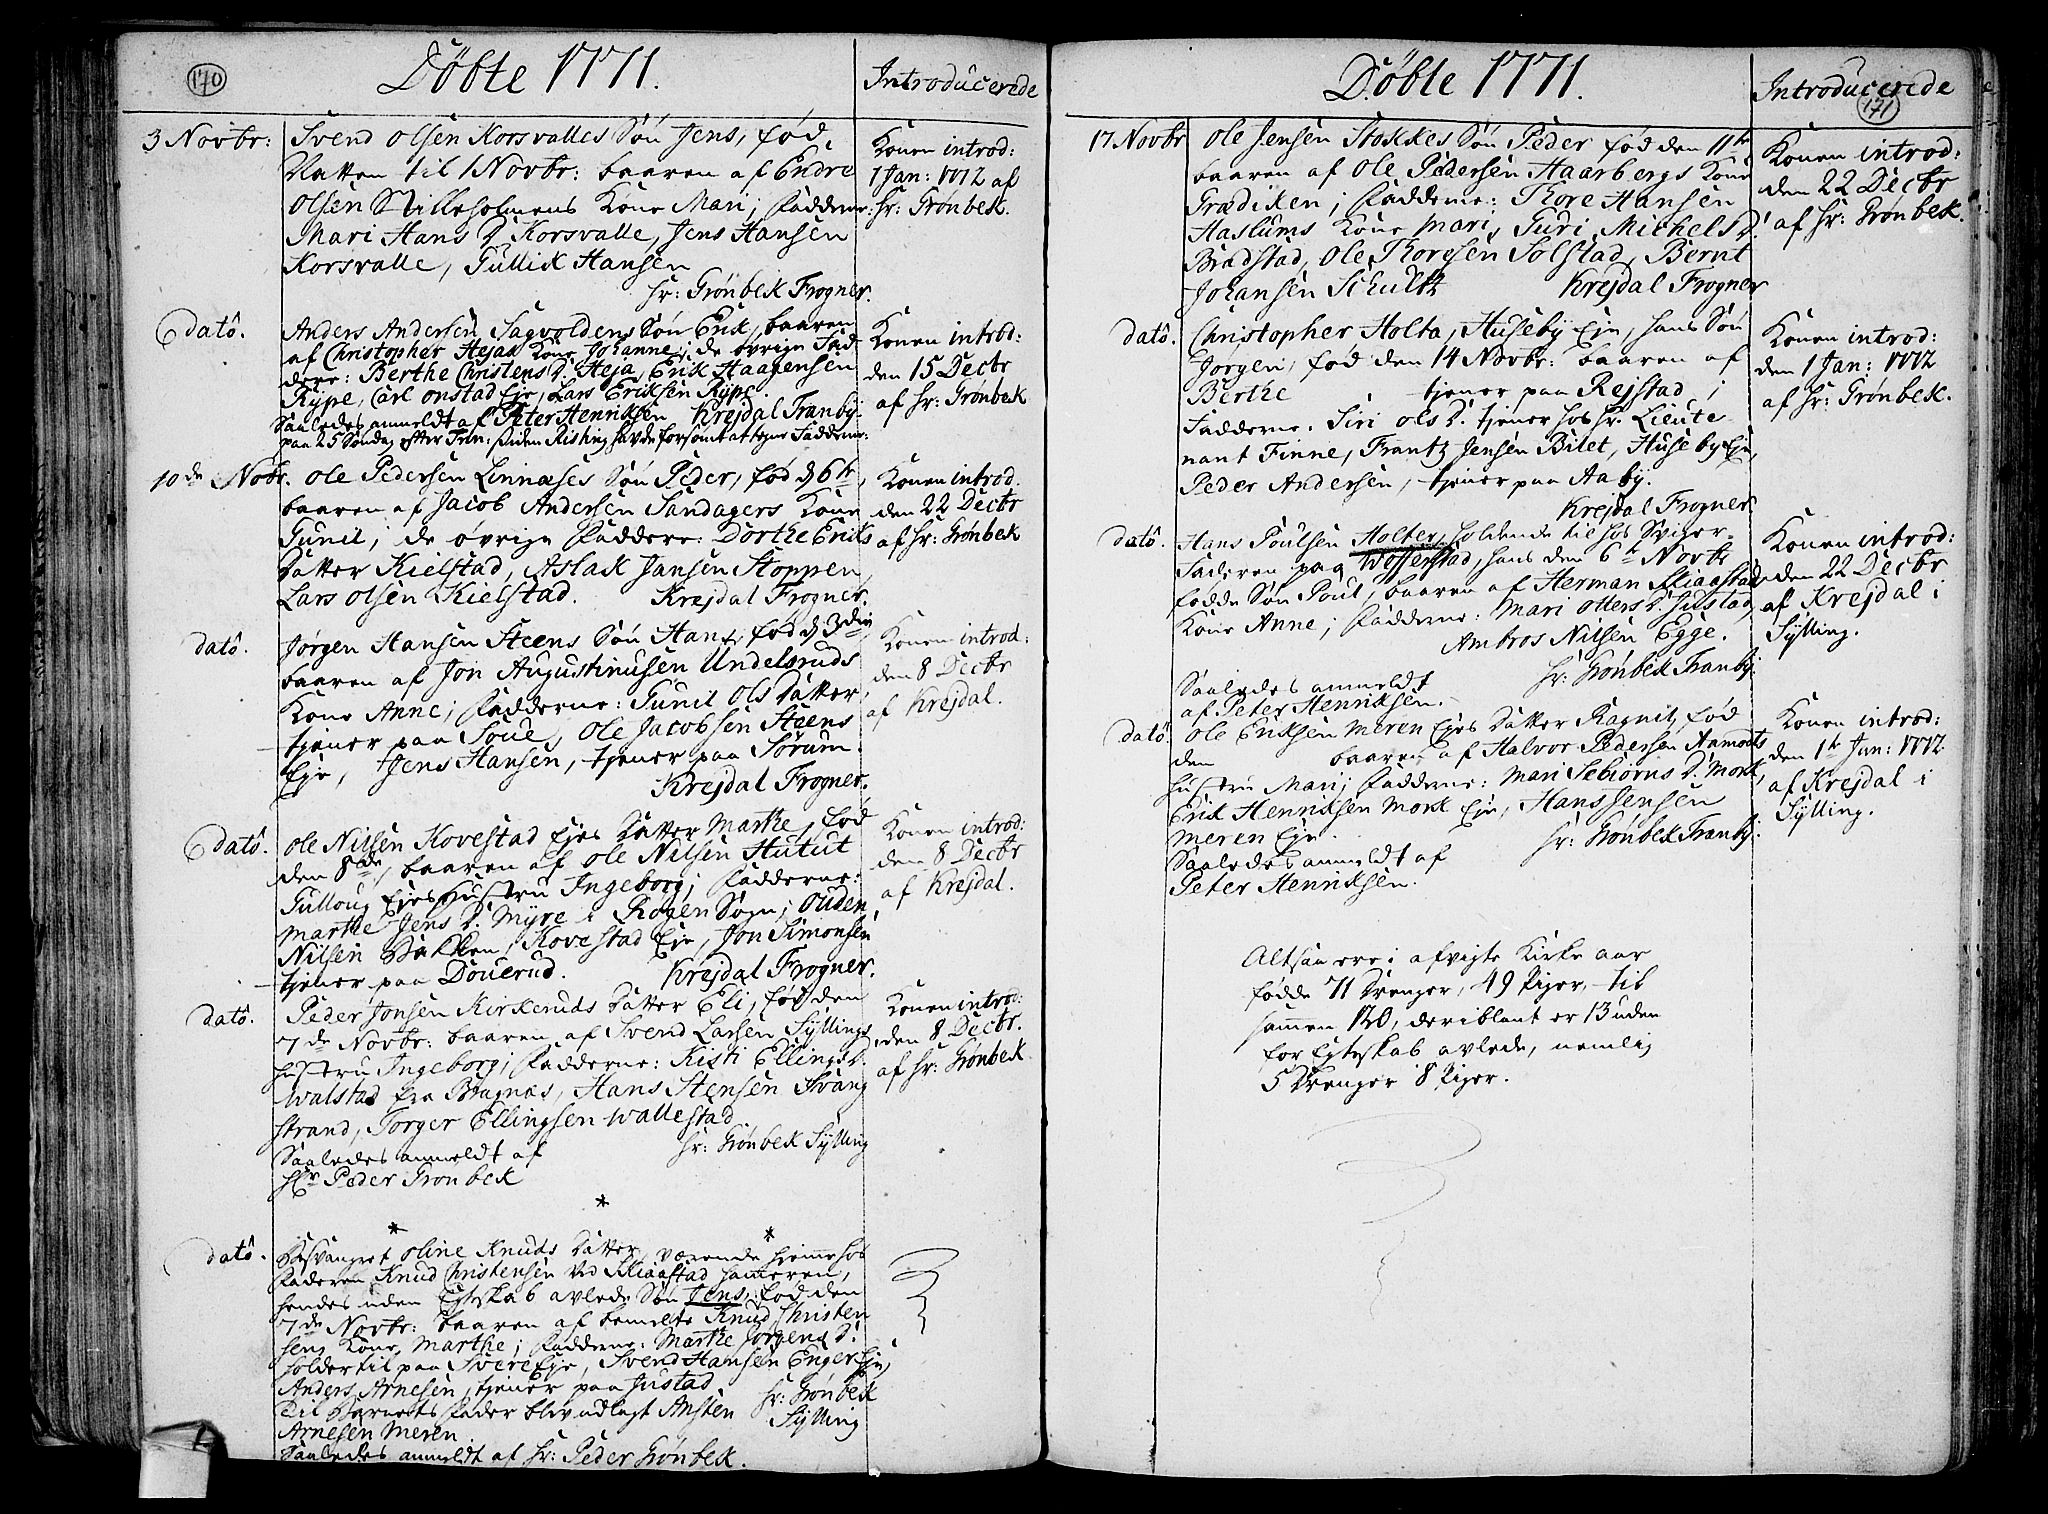 170
Döbte 1771.
Introducerede
3 Novbr: Svend Olsen Korsvalles Sön Jens, fød
Natten til 1 Novbr: baaren af Endre
Olsen Stilleholmens Kone Mari; Fadderne:
Mari Hans D. Korsvalle, Jens Hansen
Korsvalle, Gullik Hansen
Hr: Grönbek Frogner.
Konen introd:
1 Jan: 1772 af
Hr: Grönbek.
dato. Anders Andersen Sagvoldens Sön Erik, baaren
af Christopher Hejas Kone Johanne; de øvrige Fad
dere: Berthe Christens D. Heja, Erik Haagensen
Rype, Carl Onstad Eje, Lars Eriksen Rype.
Saaledes anmeldt af Peter Henriksen Krejdal Tranby.
paa 25 Søndag efter Trin: siden Risting havde forsømt at tegne Fadderne.
Konen introd:
den 15 Decbr
af Hr: Grönbek
10de Novbr. Ole Pedersen Linnæses Sön Peder, fød d 6te,
baaren af Jacob Andersen Sandagers Kone
Gunil; de øvrige Faddere: Dorthe Eriks
Datter Kielstad, Aslak Jansen Stoppen,
Lars Olsen Kielstad. Krejdal Frogner.
Konen introd.
den 22 Decbr
af Hr: Grönbek
dato. Jørgen Hansen Steens Sön Hans, fød d 3die
baaren af Jon Augustinusen Undelsruds
Kone Anne; Fadderne: Gunil Ols Datter
tjener paa Soue, Ole Jacobsen Steens
Eje, Jens Hansen, tjener paa Sørum.
Krejdal Frogner.
Konen introd:
den 8 Decbr
af Krejdal.
dato. Ole Nilsen Kovestad Ejes Datter Marthe, fød
den 8de, baaren af Ole Nilsen Hutut
Gulloug Ejes Hustru Ingeborg; Fadderne:
Marthe Jens D. Myre i Røgen Sogn; Ouden
Nilsen Bakken, Kovestad Eje, Jon Simonsen
tjener paa Douerud. Krejdal Frogner.
Konen introd:
den 8 Decbr
af Krejdal.
dato. Peder Jonsen Kirkeruds Datter Eli, fød den
7de Novbr: baaren af Svend Larsen Syllings
Hustru Ingeborg; Fadderne: Kisti Ellings D.
Walstad fra Bragnæs, Hans Stensen Svang
strand, Torger Ellingsen Wallestad
Saaledes anmeldt af Hr: Grönbek Sylling
Hr Peder Grønbek
Konen introd:
den 8 Decbr.
af Hr: Grönbek
* * *
dato. Besvangret Oline Knuds Datter, værende hiemme hos
Faderen Knud Christensen ved Kliaastad Hameren,
hendes uden Egteskab avlede Sön Jens, fød den
7de Novbr: baaren af bemelte Knud Christen
sens Kone Marthe; Fadderne: Marthe Jørgens D.
holder til paa Svere Eje, Svend Hansen Enger Eje,
Anders Arnesen, tjener paa Justad
Til Barnets Fader blev udlagt Ansten
Arnesen Meren
Hr: Grönbek
Sylling
Saaledes anmeldt af Hr: Peder Grönbek.
171
Döbte 1771.
Introducerede
17 Novbr Ole Jensen Stokkes Sön Peder fød den 11te
baaren af Ole Pedersen Haarbergs Kone
Grædiken; Fadderne: Thore Hansen
Haslums Kone Mari, Guri Michels D.
Brødstad, Ole Thoresen Solstad, Bernt
Johansen Schultz Krejdal Frogner
Konen introd:
den 22 Decbr
af Hr: Grönbek.
dato. Christopher Holta, Huseby Eje, hans Sön
Jørgen, fød den 14 Novbr: baaren af
Berthe tjener paa Rejstad;
Fadderne: Siri Ols D. tjener hos Hr. Lieute
nant Finne, Frantz Jensen Bilet, Huseby Eje,
Peder Andersen, tjener paa Aaby.
Krejdal Frogner
Konen introd:
den 1 Jan: 1772
af Hr: Grönbek.
dato. Hans Poulsen Holter, holdende til hos Sviger-
Faderen paa Wefferstad, hans den 6te Novbr
fødde Sön Poul, baaren af Herman Kliaastad
Kone Anne; Fadderne: Mari Otters D. Justad,
Ambros Nilsen Egge.
Saaledes anmeldt Hr: Grönbek Tranby.
af Peter Henriksen.
Konen introd:
den 22 Decbr
af Krejdal i
Sylling.
dato. Ole Eriksen Meren Ejes Datter Ragnil, fød
den baaren af Halvor Pedersen Aamodts
Hustru Mari; Fadderne: Mari Sebiørns D. Mork,
Erik Henriksen Mork Eje, Hans Jensen
Meren Eje.
Hr: Grönbek Tranby.
Saaledes anmeldt af
Peter Henriksen.
Konen introd:
den 1te Jan: 1772
af Krejdal i
Sylling.
Altsaa ere i afvigte Kirke aar
fødde 71 Drenger, 49 Piger, til
sammen 120, deriblant er 13 uden
for Egteskab avlede, nemlig
5 Drenger 8 Piger.